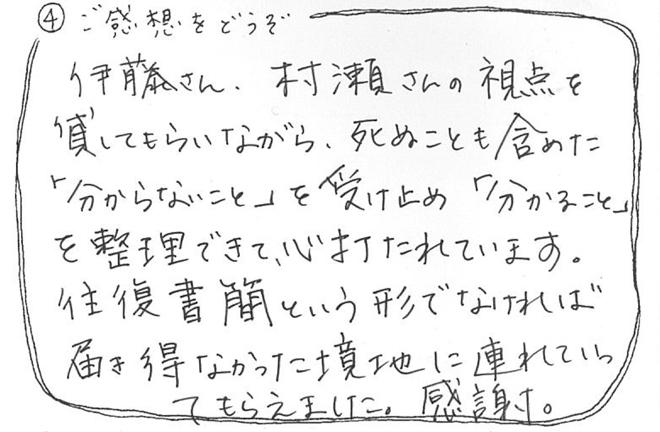 ④ご感想をどうぞ
伊藤さん、村瀬さんの視点を
貸してもらいながら、死ぬことも含めた
「分からないこと」を受け止め「分かること」
を整理できて、心打たれています。
往復書簡という形でなければ
届き得なかった境地に連れていっ
てもらえました。感謝。